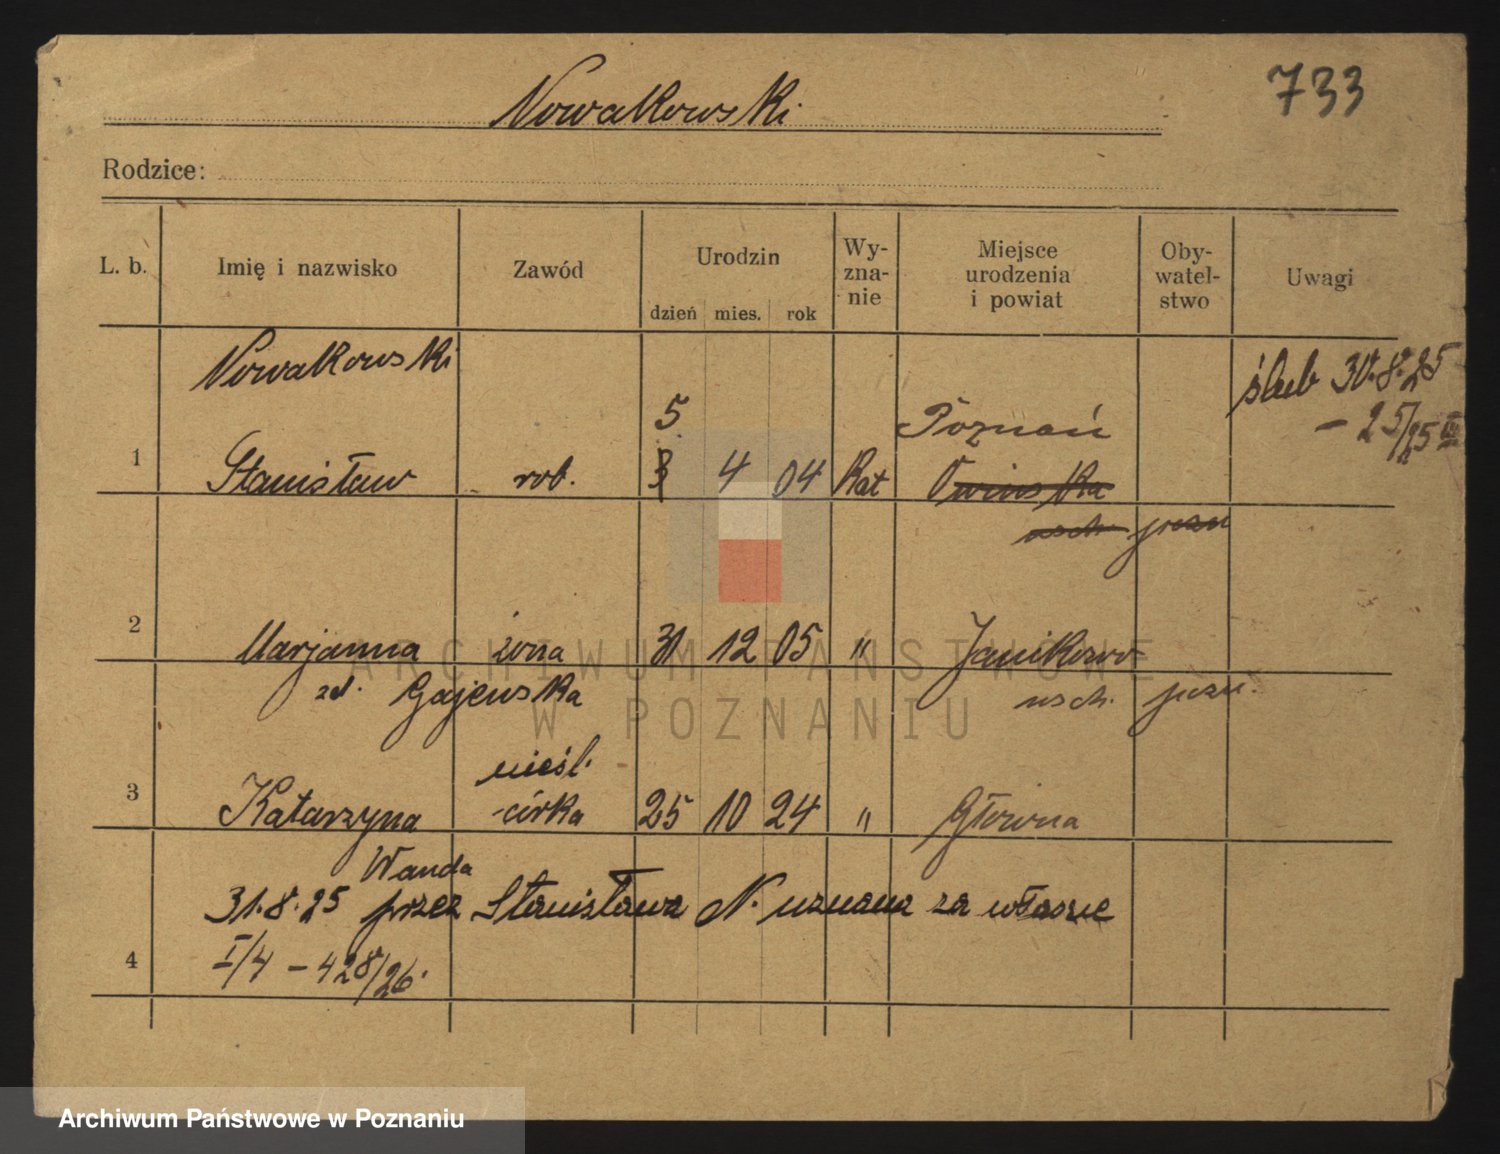 733
Nowakowski
Rodzice:
L. b. Imię i nazwisko Zawód Urodzin dzień mies. rok Wy-zna-nie Miejsce urodzenia i powiat Oby-watel-stwo Uwagi
Nowakowski ślub 30.8.25
5 Poznań – 25/25
1 Stanisław rob. 3 4 04 Kat Owinska
wsch. pozn
2 Marjanna żona 31 12 05 " Janikowo
zd. Gajewska wsch. pozn.
nieśl.
3 Katarzyna córka 25 10 24 " Główna
Wanda
31.8.25 przez Stanisława N. uznana za własne
4 I/4 – 428/26.
ARCHIWUM PAŃSTWOWE
W POZNANIU
Archiwum Państwowe w Poznaniu